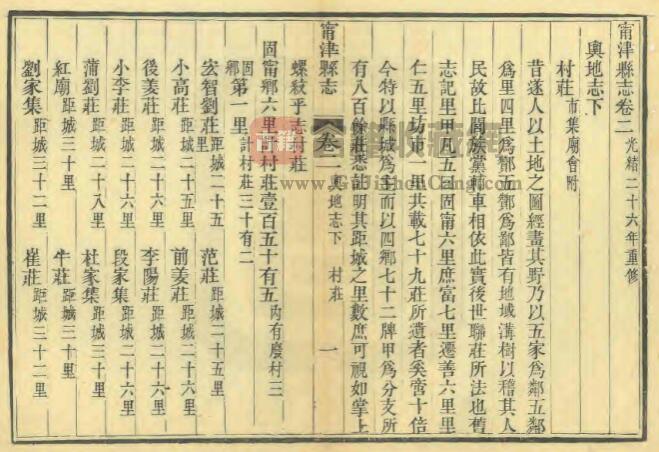 甯津縣志卷二 光緒二十六年重修
輿地志下
村莊 市集廟會附
昔遂人以土地之圖經畫其野乃以五家為鄰五鄰
為里四里為酇五酇為鄙皆有地域溝樹以稽其人
民故比閭族黨輔車相依此實後世聯莊所法也舊
志記里甲凡五曰固甯六里庶富七里遷善六里里
仁五里坊市一里共載七十九莊所遺者奚啻十倍
今特以縣城為主而以四鄉七十二牌甲為分支所
有八百餘莊悉註明其距城之里數庶可視如掌上
甯津縣志 卷二 輿地志下 村莊 一
螺紋乎志村莊
固甯鄉六里 村莊壹百五十有五 內有廢村三
固鄉第一里 計村莊三十有二
宏智劉莊 距城二十五里 范莊 距城二十五里
小高莊 距城二十五里 前姜莊 距城二十六里
後姜莊 距城二十六里 李陽莊 距城二十六里
小李莊 距城二十六里 段家集 距城二十六里
蒲劉莊 距城二十八里 杜家集 距城三十里
紅廟 距城三十里 牛莊 距城三十里
劉家集 距城三十二里 崔莊 距城三十二里
古籍收藏館
www.GuJiShouCang.com